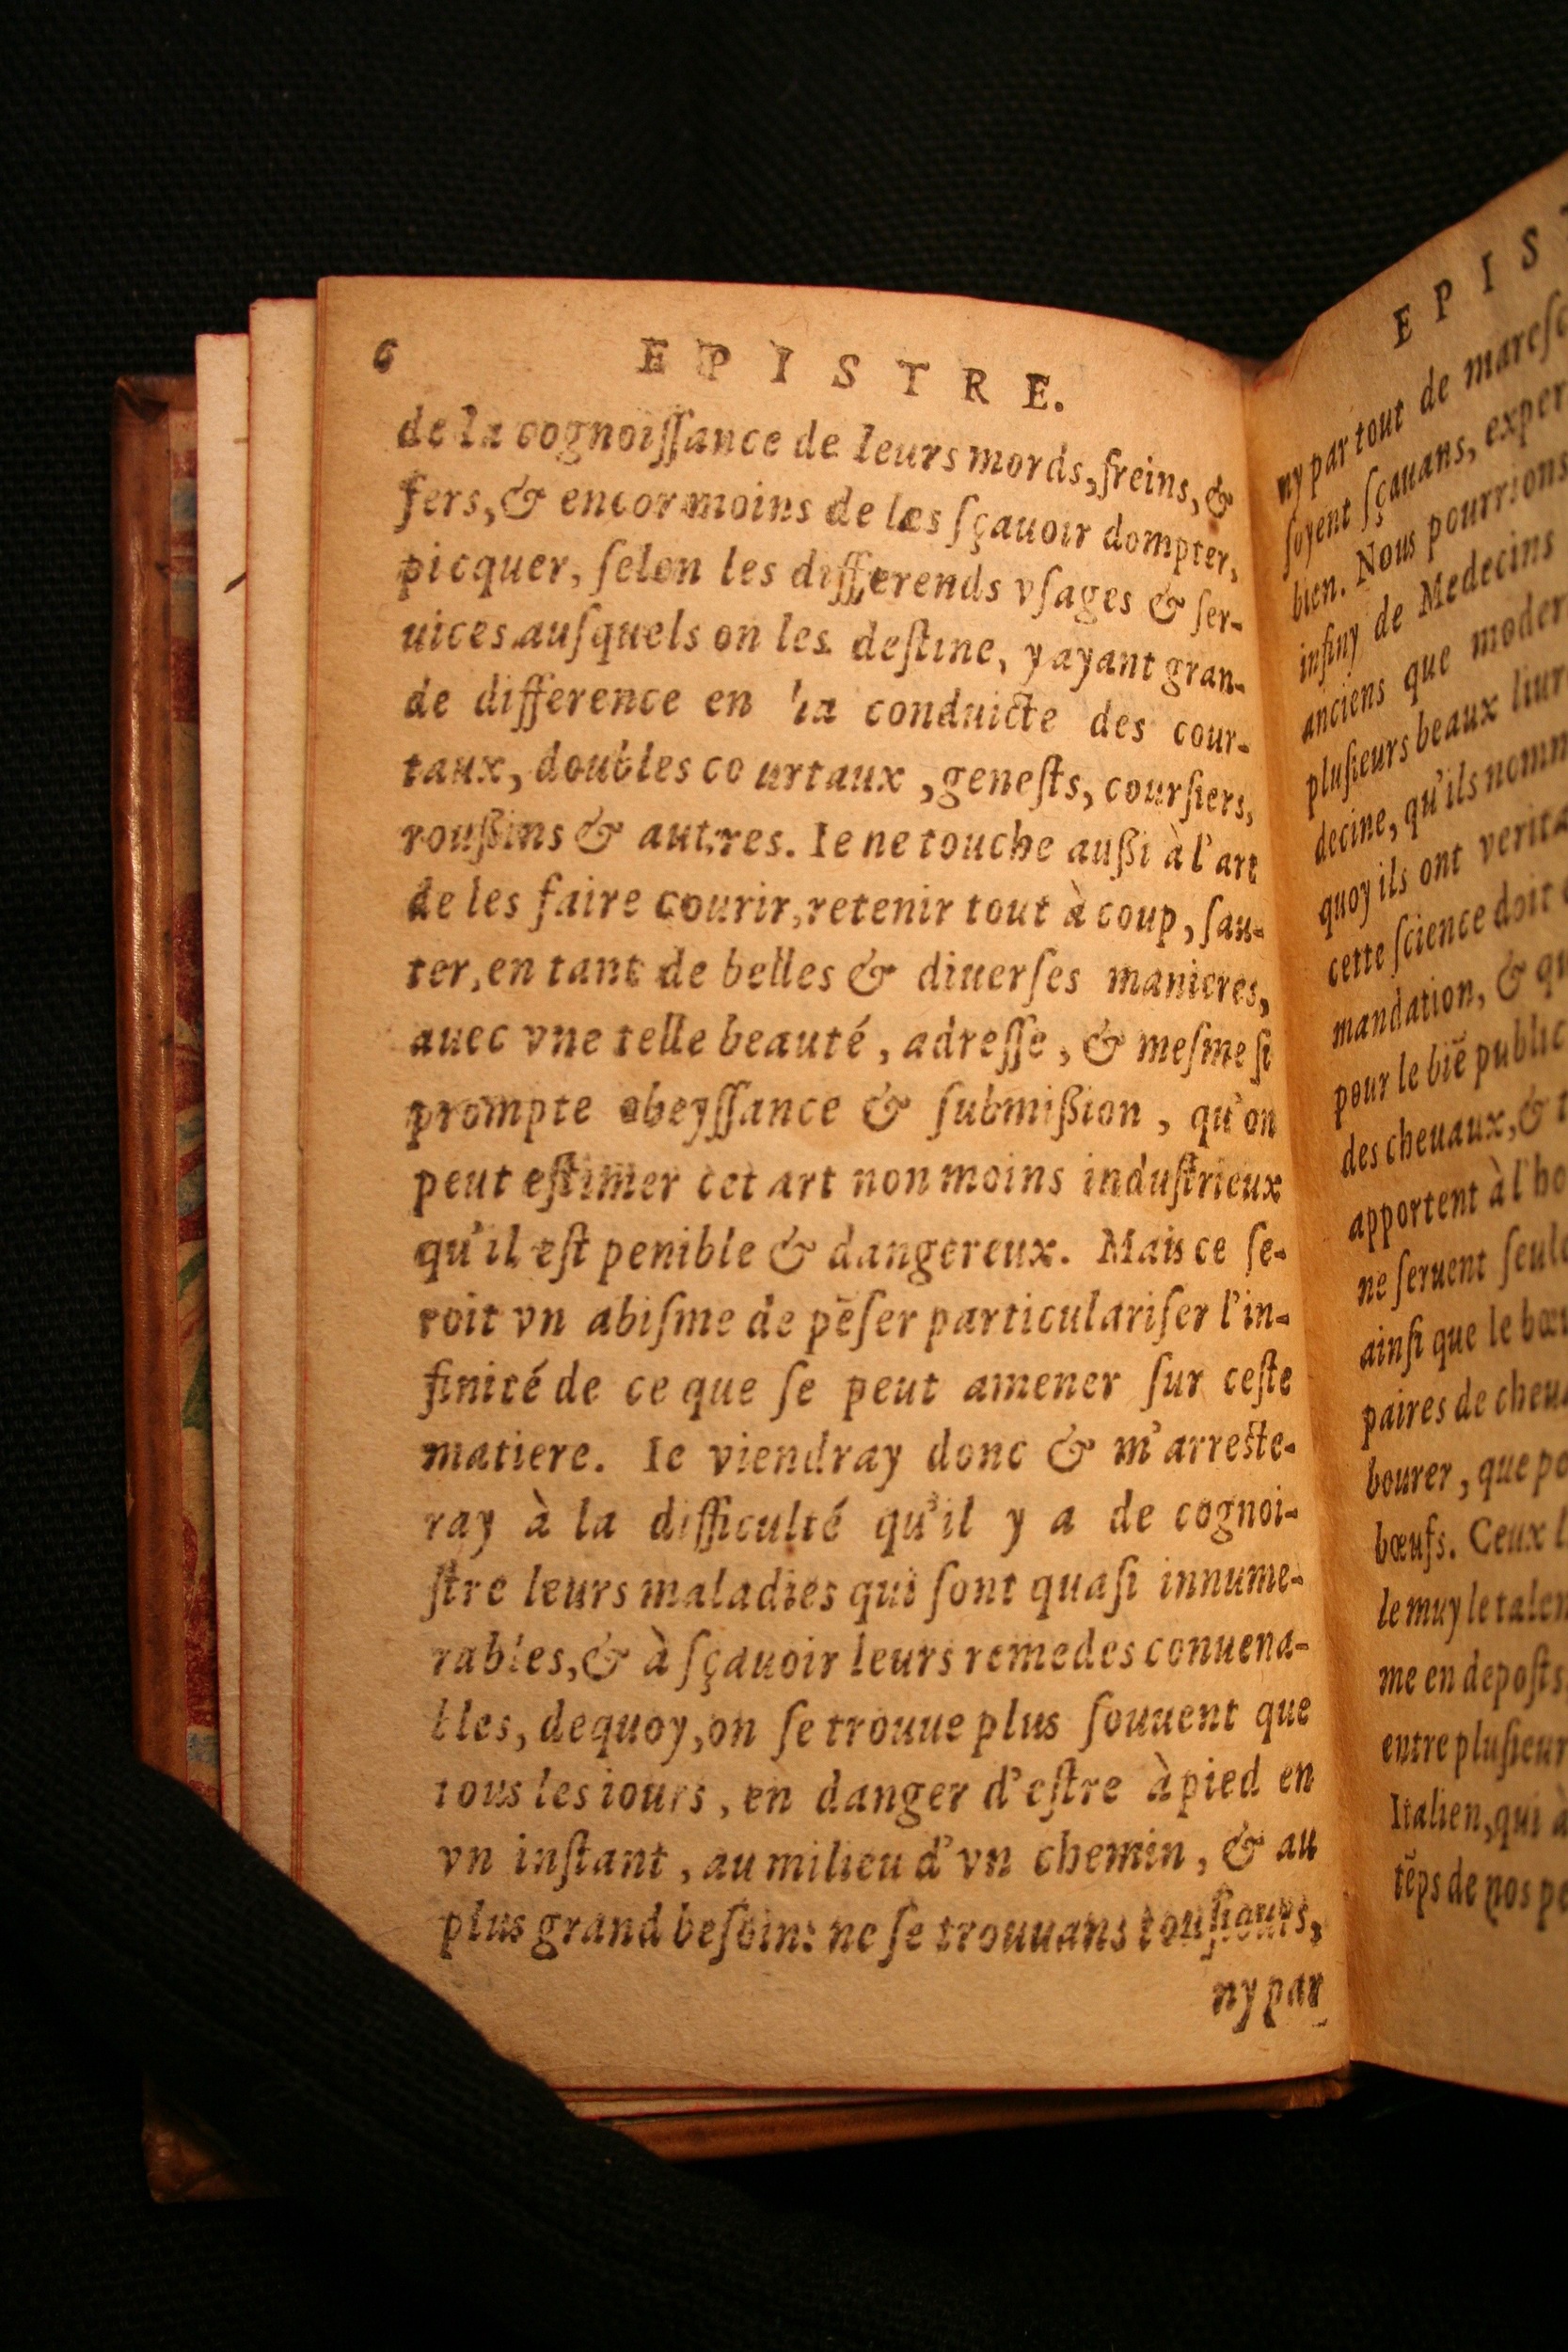 6 EPISTRE.
de la cognoiſſance de leurs mords, freins, &
fers, & encor moins de les ſçauoir dompter,
picquer, ſelon les differends vſages & ſer-
uices auſquels on les deſtine, y ayant gran-
de difference en la conduicte des cour-
taux, doubles courtaux, geneſts, courſiers,
roußins & autres. Ie ne touche außi à l'art
de les faire courir, retenir tout à coup, ſau-
ter, en tant de belles & diuerſes manieres,
auec vne telle beauté, adreſſe, & meſme ſi
prompte obeyſſance & ſubmißion, qu'on
peut eſtimer cet art non moins induſtrieux
qu'il eſt penible & dangereux. Mais ce ſe-
roit vn abiſme de pēſer particulariſer l'in-
finité de ce que ſe peut amener ſur ceſte
matiere. Ie viendray donc & m'arreſte-
ray à la difficulté qu'il y a de cognoi-
ſtre leurs maladies qui ſont quaſi innume-
rables, & à ſçauoir leurs remedes conuena-
bles, dequoy, on ſe trouue plus ſouuent que
tous les iours, en danger d'eſtre à pied en
vn inſtant, au milieu d'vn chemin, & au
plus grand beſoin: ne ſe trouuans touſiours,
ny par
EPIS
ny par tout de mareſc
ſoyent ſçauans, exper
bien. Nous pourrions
infiny de Medecins
anciens que moder
pluſieurs beaux liur
decine, qu'ils nomm
quoy ils ont verita
cette ſcience doit
mandation, & qu
pour le biē public
des cheuaux, &
apportent à l'ho
ne ſeruent ſeule
ainſi que le bœu
paires de cheu
bourer, que po
bœufs. Ceux
le muy le talen
me en depoſts
entre pluſieur
Italien, qui
tēps de nos pe